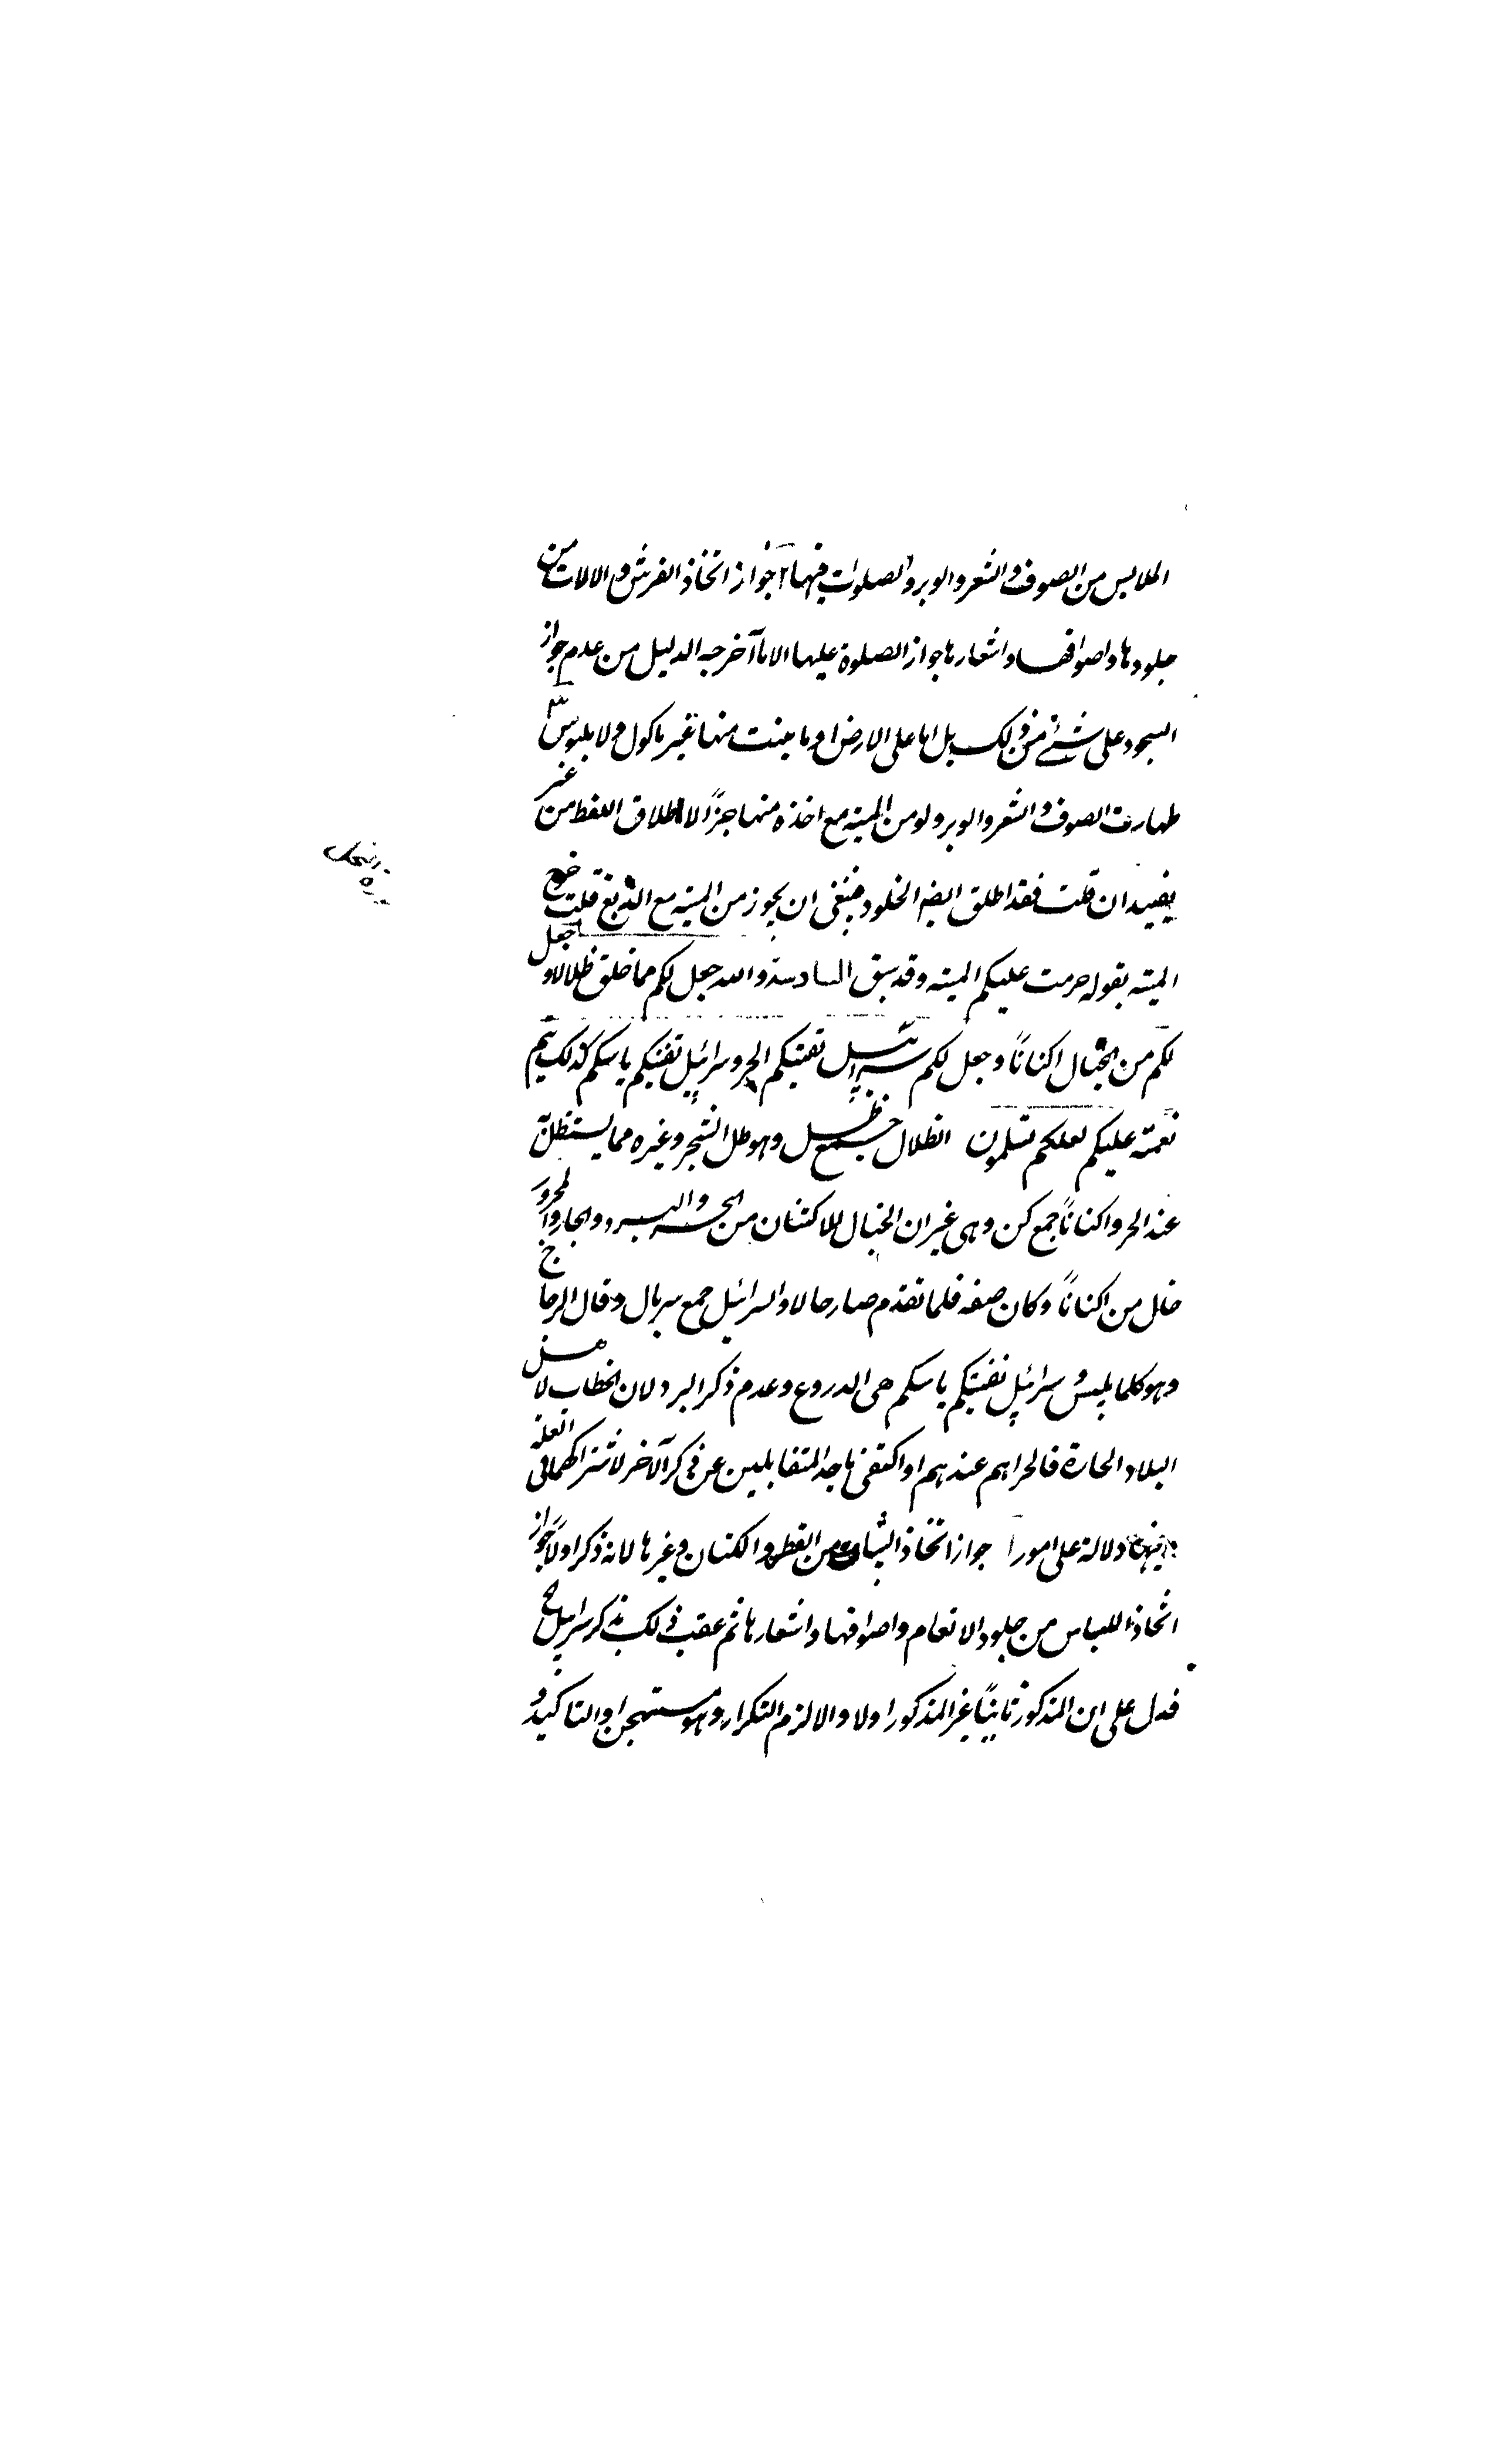 الملابس من الصوف والشعر والوبر والصلوات فيها ٢ جواز اتخاذ الفرش والالات من
جلودها واصوافها واشعارها وجواز الصلوة عليها الا ما اخرجه الدليل من عدم جواز
السجود على شئ من ذلك بل اما على الارض او ما ينبت منها غير ماكول ولا ملبوس ٣
طهارت الصوف والشعر والوبر ولو من الميته مع اخذه منها جزًا لاطلاق اللفظ من غير
يفيد ان قلت فقد اطلق ايضا الجلود فينبغى ان يجوز من الميته مع الدبغ قلت خرج
الميته بقوله حرمت عليكم الميته وقد سبق السادسة والله جعل لكم مما خلق ظلالا وجعل
لكم من الجبال اكنانًا وجعل لكم سرابيل تقيكم الحر وسرابيل تقيكم باسكم كذلك يتم
نعمته عليكم لعلكم تسلمون الظلال جمع ظل وهو ظل الشجر وغيره مما يستظل به
عند الحر واكنانًا جمع كن وهى غيران الجبال للاكتنان من الحر والبرد والجار والمجرور
حال من اكنانًا وكان صفه فلما تقدم صار حالا والسرابيل جمع سربال وقال الزجاج
وهو كلما يلبس وسرابيل تقيكم باسكم هى الدروع وعدم ذكر البرد لان الخطاب لاهل
البلاد الحارة فالحر اهم عندهم او اكتفى باحد المتقابلين عن ذكر الآخر لاشتراكهما فى العلة
وفيها دلالة على امور ١ جواز اتخاذ الثياب من القطن والكتان وغيرها لانه ذكر اولًا جواز
اتخاذ اللباس من جلود الانعام واصوافها واشعارها ثم عقب ذلك بذكر سرابيل
فدل على ان المذكور ثانيًا غير المذكور اولا والا لزم التكرار وهو مستهجن والتاكيد و